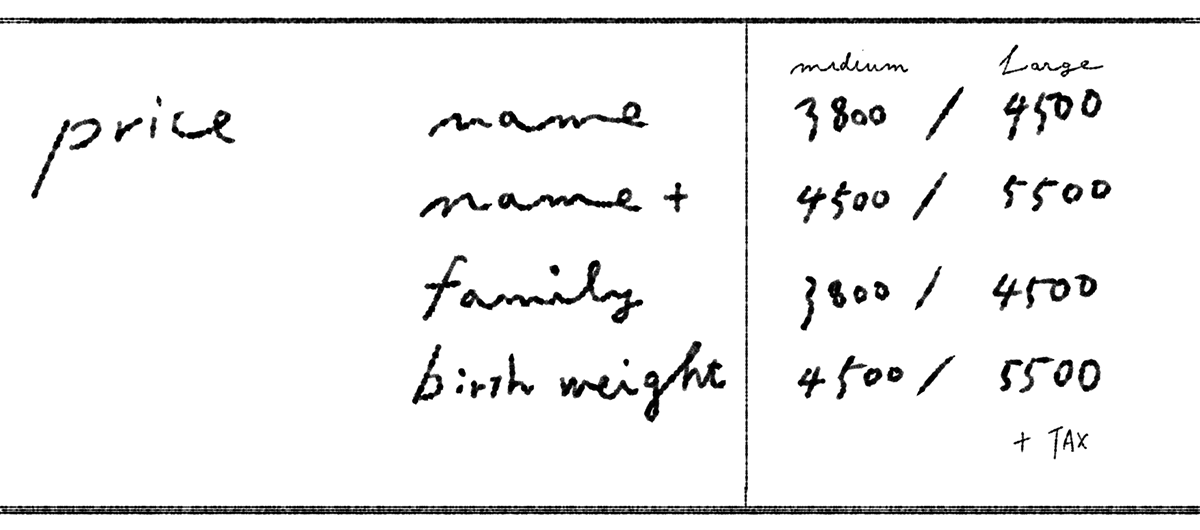 medium Large
price name 3800 / 4500
name + 4500 / 5500
family 3800 / 4500
birth weight 4500 / 5500
+ TAX